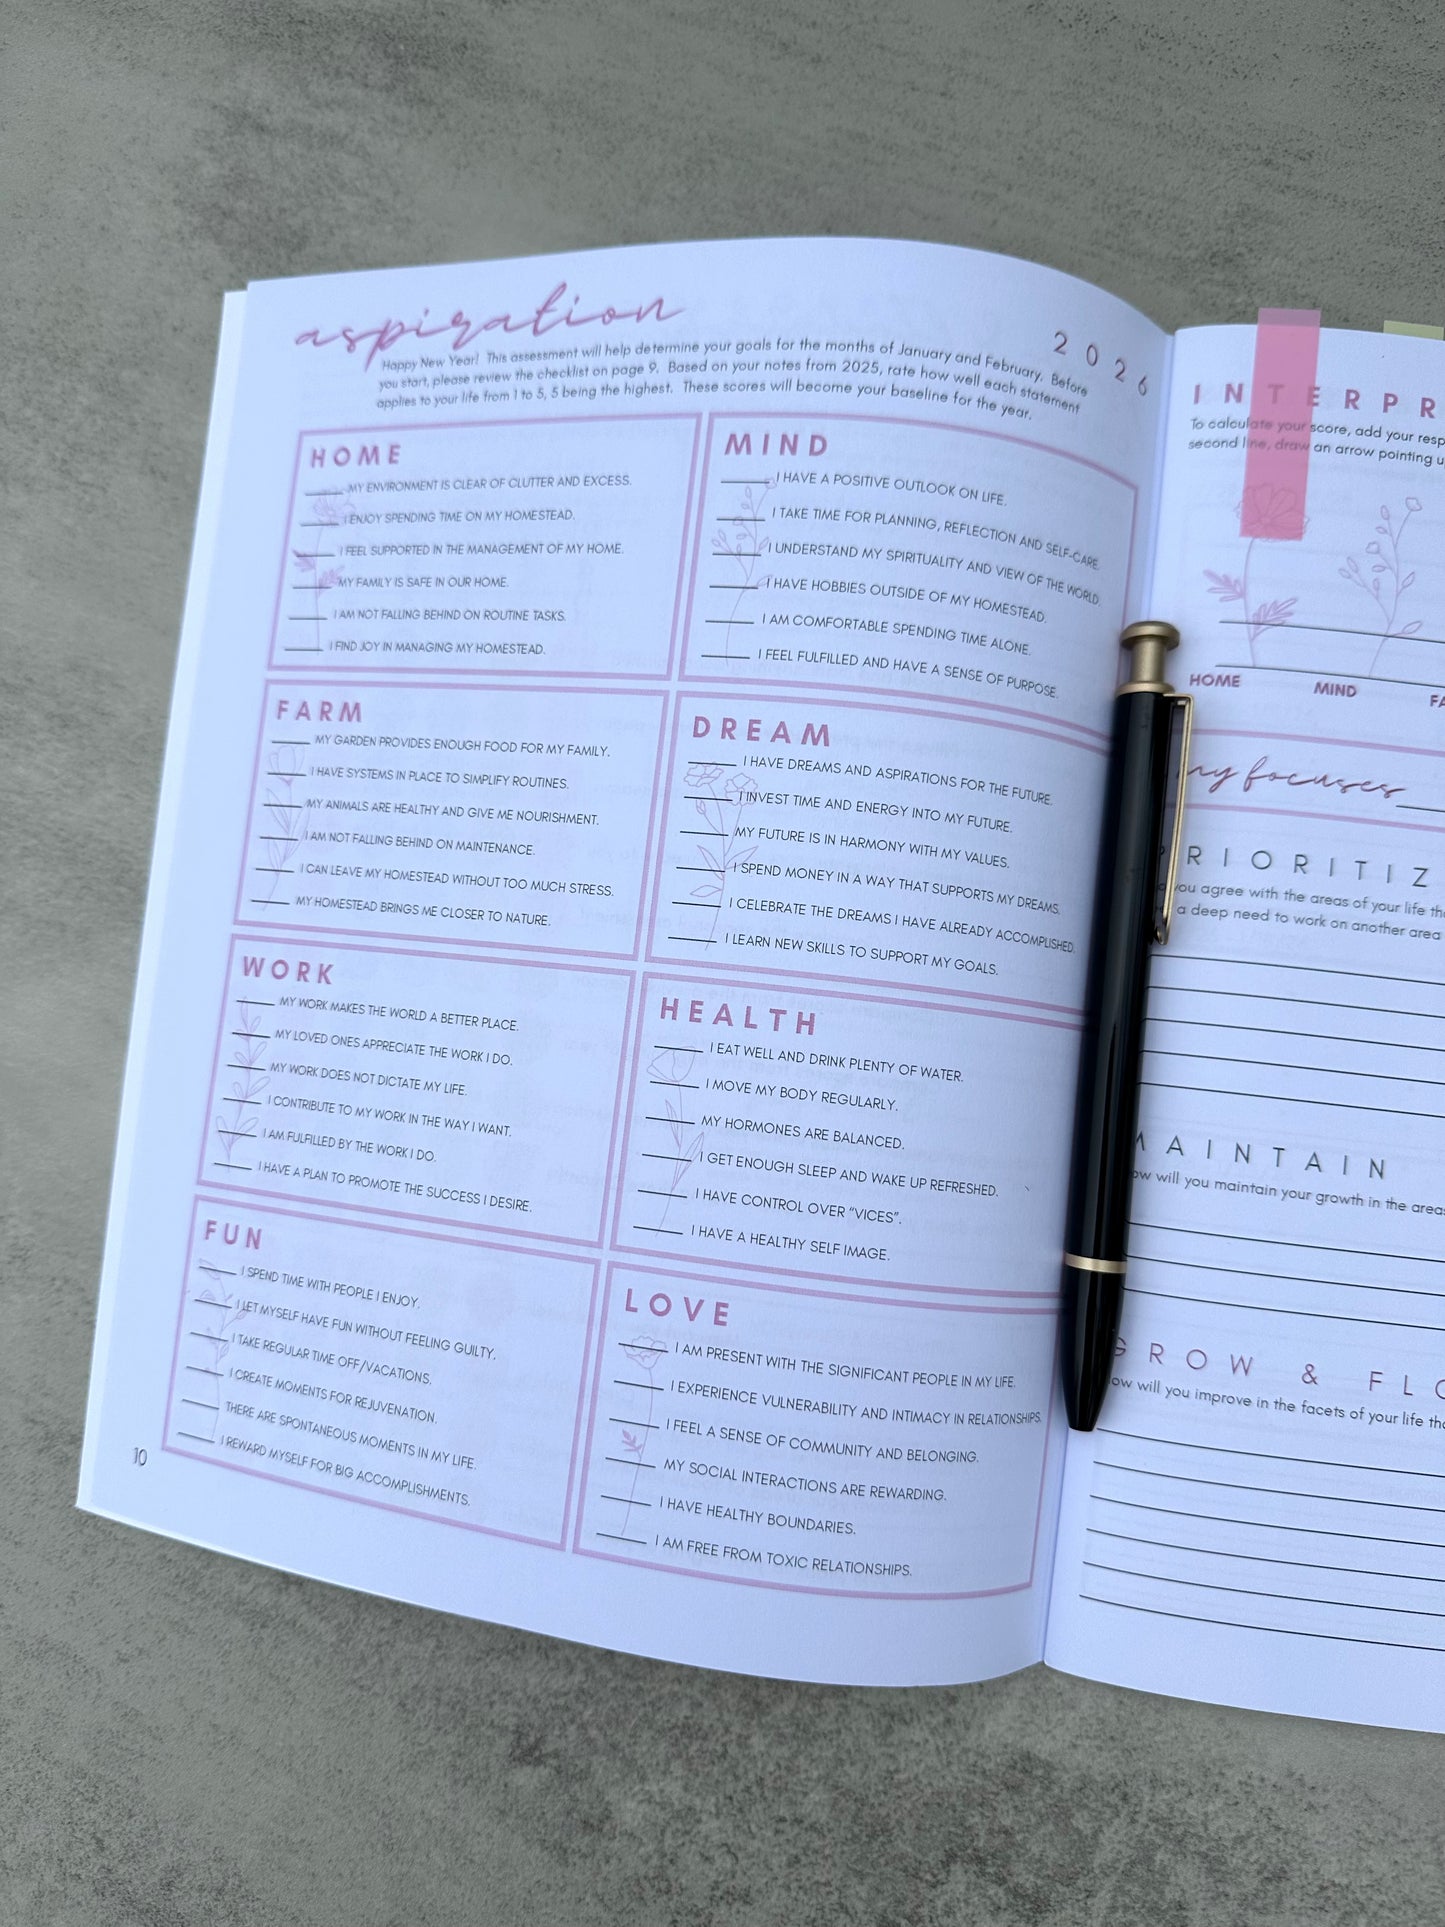 aspiration
2026
Happy New Year! This assessment will help determine your goals for the months of January and February. Before
you start, please review the checklist on page 9. Based on your notes from 2025, rate how well each statement
applies to your life from 1 to 5, 5 being the highest. These scores will become your baseline for the year.
HOME
MY ENVIRONMENT IS CLEAR OF CLUTTER AND EXCESS.
I ENJOY SPENDING TIME ON MY HOMESTEAD.
I FEEL SUPPORTED IN THE MANAGEMENT OF MY HOME.
MY FAMILY IS SAFE IN OUR HOME.
I AM NOT FALLING BEHIND ON ROUTINE TASKS.
I FIND JOY IN MANAGING MY HOMESTEAD.
MIND
I HAVE A POSITIVE OUTLOOK ON LIFE.
I TAKE TIME FOR PLANNING, REFLECTION AND SELF-CARE.
I UNDERSTAND MY SPIRITUALITY AND VIEW OF THE WORLD.
I HAVE HOBBIES OUTSIDE OF MY HOMESTEAD.
I AM COMFORTABLE SPENDING TIME ALONE.
I FEEL FULFILLED AND HAVE A SENSE OF PURPOSE.
FARM
MY GARDEN PROVIDES ENOUGH FOOD FOR MY FAMILY.
I HAVE SYSTEMS IN PLACE TO SIMPLIFY ROUTINES.
MY ANIMALS ARE HEALTHY AND GIVE ME NOURISHMENT.
I AM NOT FALLING BEHIND ON MAINTENANCE.
I CAN LEAVE MY HOMESTEAD WITHOUT TOO MUCH STRESS.
MY HOMESTEAD BRINGS ME CLOSER TO NATURE.
DREAM
I HAVE DREAMS AND ASPIRATIONS FOR THE FUTURE.
I INVEST TIME AND ENERGY INTO MY FUTURE.
MY FUTURE IS IN HARMONY WITH MY VALUES.
I SPEND MONEY IN A WAY THAT SUPPORTS MY DREAMS.
I CELEBRATE THE DREAMS I HAVE ALREADY ACCOMPLISHED.
I LEARN NEW SKILLS TO SUPPORT MY GOALS.
WORK
MY WORK MAKES THE WORLD A BETTER PLACE.
MY LOVED ONES APPRECIATE THE WORK I DO.
MY WORK DOES NOT DICTATE MY LIFE.
I CONTRIBUTE TO MY WORK IN THE WAY I WANT.
I AM FULFILLED BY THE WORK I DO.
I HAVE A PLAN TO PROMOTE THE SUCCESS I DESIRE.
HEALTH
I EAT WELL AND DRINK PLENTY OF WATER.
I MOVE MY BODY REGULARLY.
MY HORMONES ARE BALANCED.
I GET ENOUGH SLEEP AND WAKE UP REFRESHED.
I HAVE CONTROL OVER “VICES”.
I HAVE A HEALTHY SELF IMAGE.
FUN
I SPEND TIME WITH PEOPLE I ENJOY.
I LET MYSELF HAVE FUN WITHOUT FEELING GUILTY.
I TAKE REGULAR TIME OFF/VACATIONS.
I CREATE MOMENTS FOR REJUVENATION.
THERE ARE SPONTANEOUS MOMENTS IN MY LIFE.
I REWARD MYSELF FOR BIG ACCOMPLISHMENTS.
LOVE
I AM PRESENT WITH THE SIGNIFICANT PEOPLE IN MY LIFE.
I EXPERIENCE VULNERABILITY AND INTIMACY IN RELATIONSHIPS.
I FEEL A SENSE OF COMMUNITY AND BELONGING.
MY SOCIAL INTERACTIONS ARE REWARDING.
I HAVE HEALTHY BOUNDARIES.
I AM FREE FROM TOXIC RELATIONSHIPS.
10
INTERPR
To calculate your score, add your resp
second line, draw an arrow pointing u
HOME MIND FA
my focuses
RIORITIZ
you agree with the areas of your life th
a deep need to work on another area
AINTAIN
ow will you maintain your growth in the areas
GROW & FLO
ow will you improve in the facets of your life tha